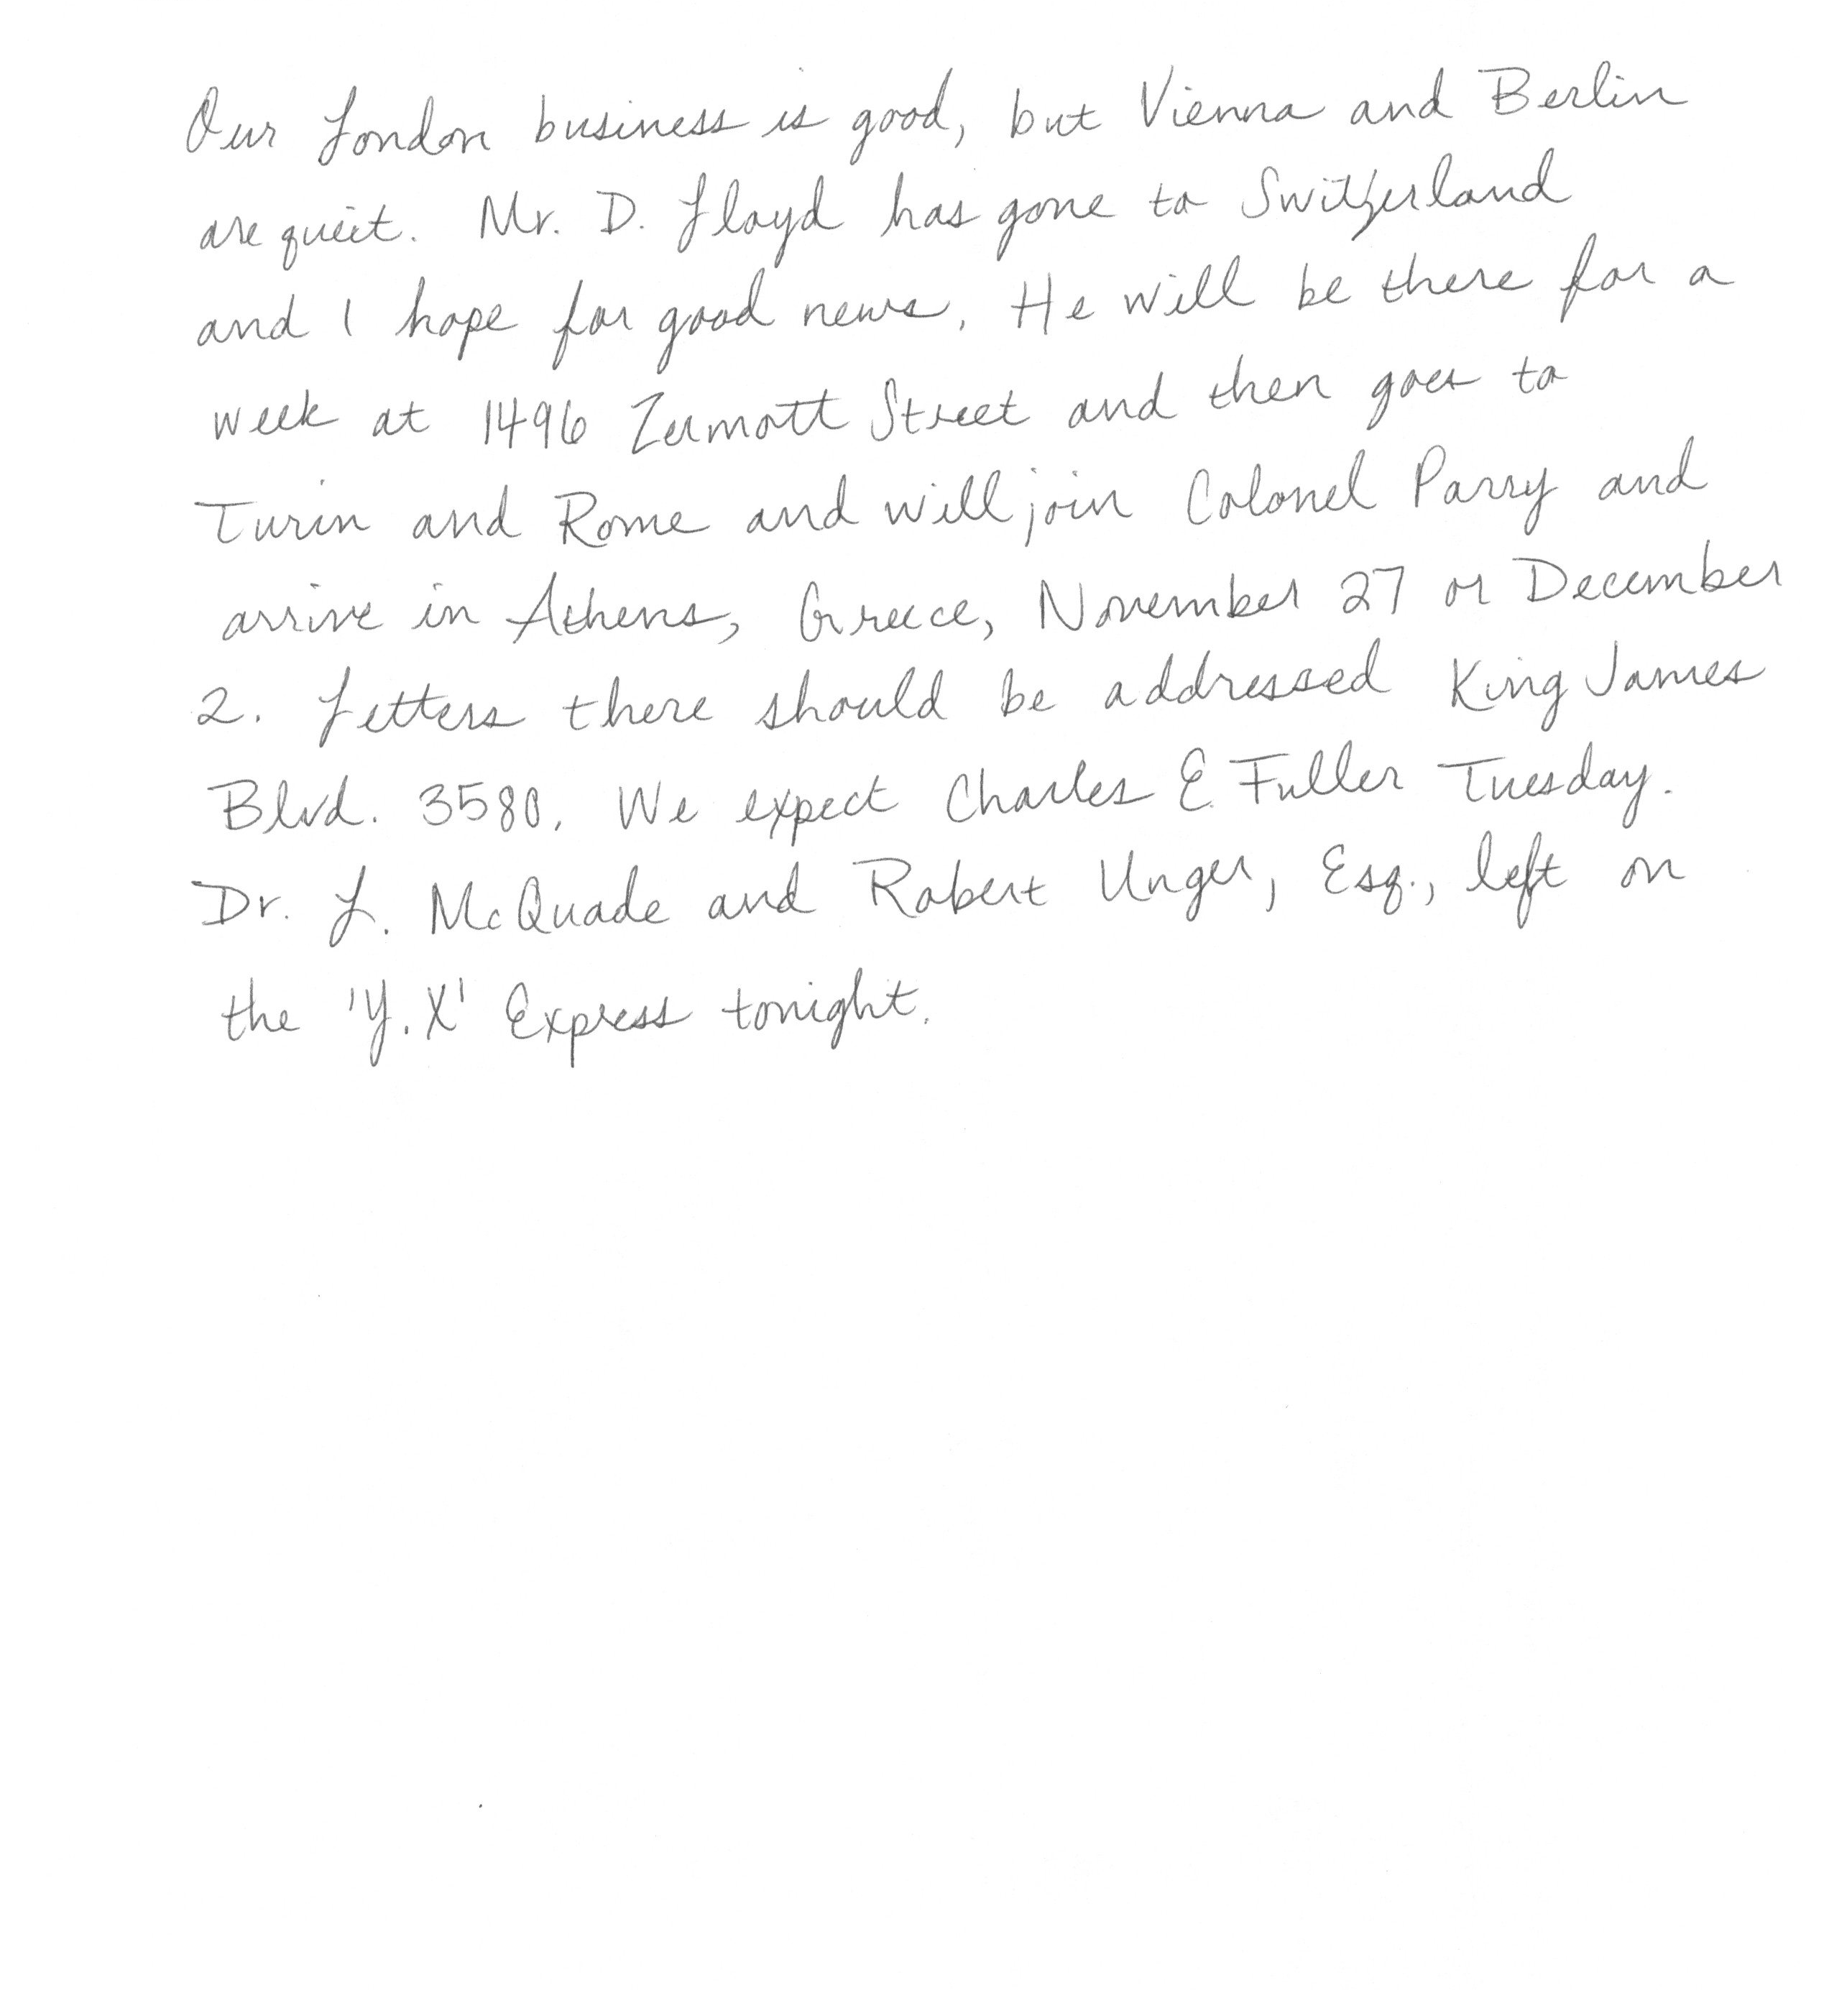 Our London business is good, but Vienna and Berlin
are quiet. Mr. D. Lloyd has gone to Switzerland
and I hope for good news. He will be there for a
week at 1496 Zermott Street and then goes to
Turin and Rome and will join Colonel Parry and
arrive in Athens, Greece, November 27 or December
2. Letters there should be addressed King James
Blvd. 3580. We expect Charles E. Fuller Tuesday.
Dr. L. McQuade and Robert Unger, Esq., left on
the 'Y.X' Express tonight.